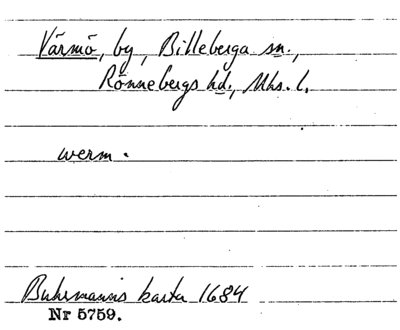 Värmö, by, Billeberga sn.,
Rönnebergs hd., Mhs. l.
werm.
Buhrmanns karta 1684
Nr 5759.